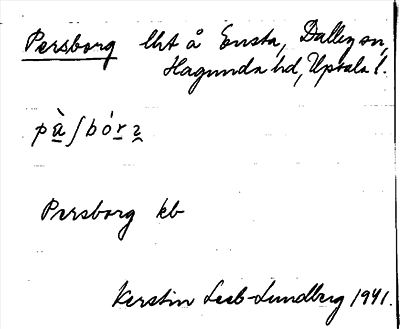 Persborg lht å Ensta, Dalby sn,
Hagunda hd, Upsala l.
pà̠ʃbór̠ꝛ̮
Persborg kb
Kerstin Leeb-Lundberg 1941.